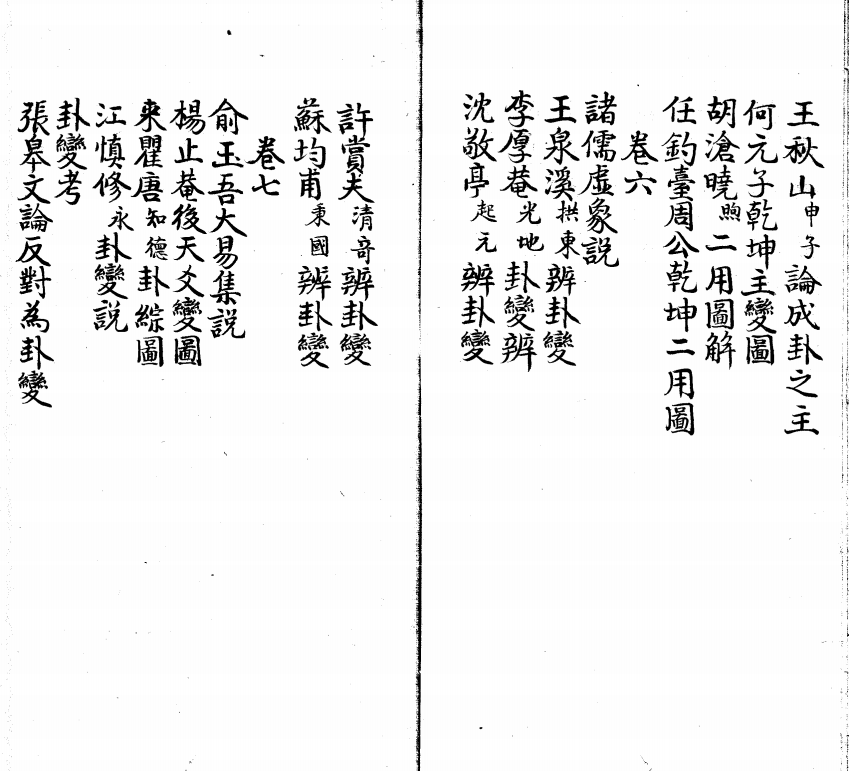 王秋山申子論成卦之主
何元子乾坤主變圖
胡滄曉煦二用圖解
任釣臺周公乾坤二用圖
卷六
諸儒虛象説
王泉溪拱東辨卦變
李厚菴光地卦變辨
沈敬亭起元辨卦變
許賞夫清竒辨卦變
蘇均甫秉國辨卦變
卷七
俞玉吾大易集説
楊止菴後天爻變圖
來瞿唐知德卦綜圖
江慎修永卦變説
卦變考
張皋文論反對為卦變